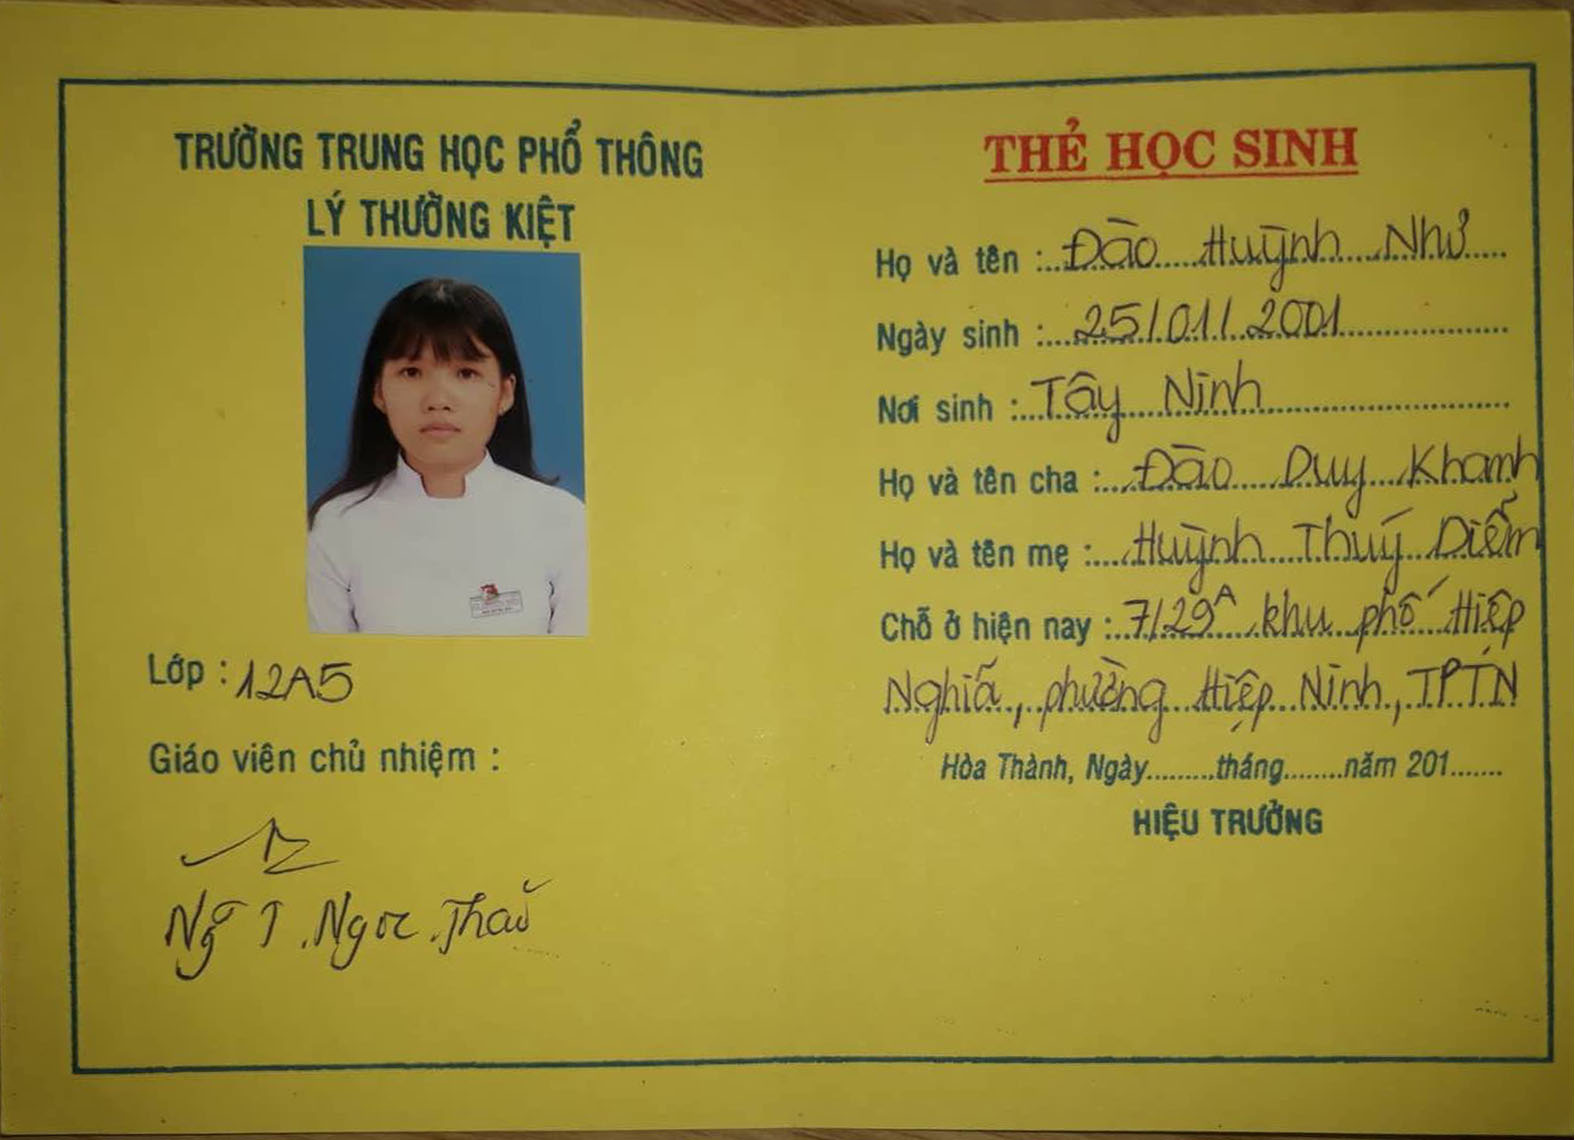 TRƯỜNG TRUNG HỌC PHỔ THÔNG
LÝ THƯỜNG KIỆT
Lớp : 12A5
Giáo viên chủ nhiệm :
Ng T. Ngọc Thảo
THẺ HỌC SINH
Họ và tên : Đào Huỳnh Như
Ngày sinh : 25/01/2001
Nơi sinh : Tây Ninh
Họ và tên cha : Đào Duy Khanh
Họ và tên mẹ : Huỳnh Thuý Diễm
Chỗ ở hiện nay : 7/29A khu phố Hiệp
Nghĩa, phường Hiệp Ninh, TPTN
Hòa Thành, Ngày.........tháng........năm 201.......
HIỆU TRƯỞNG